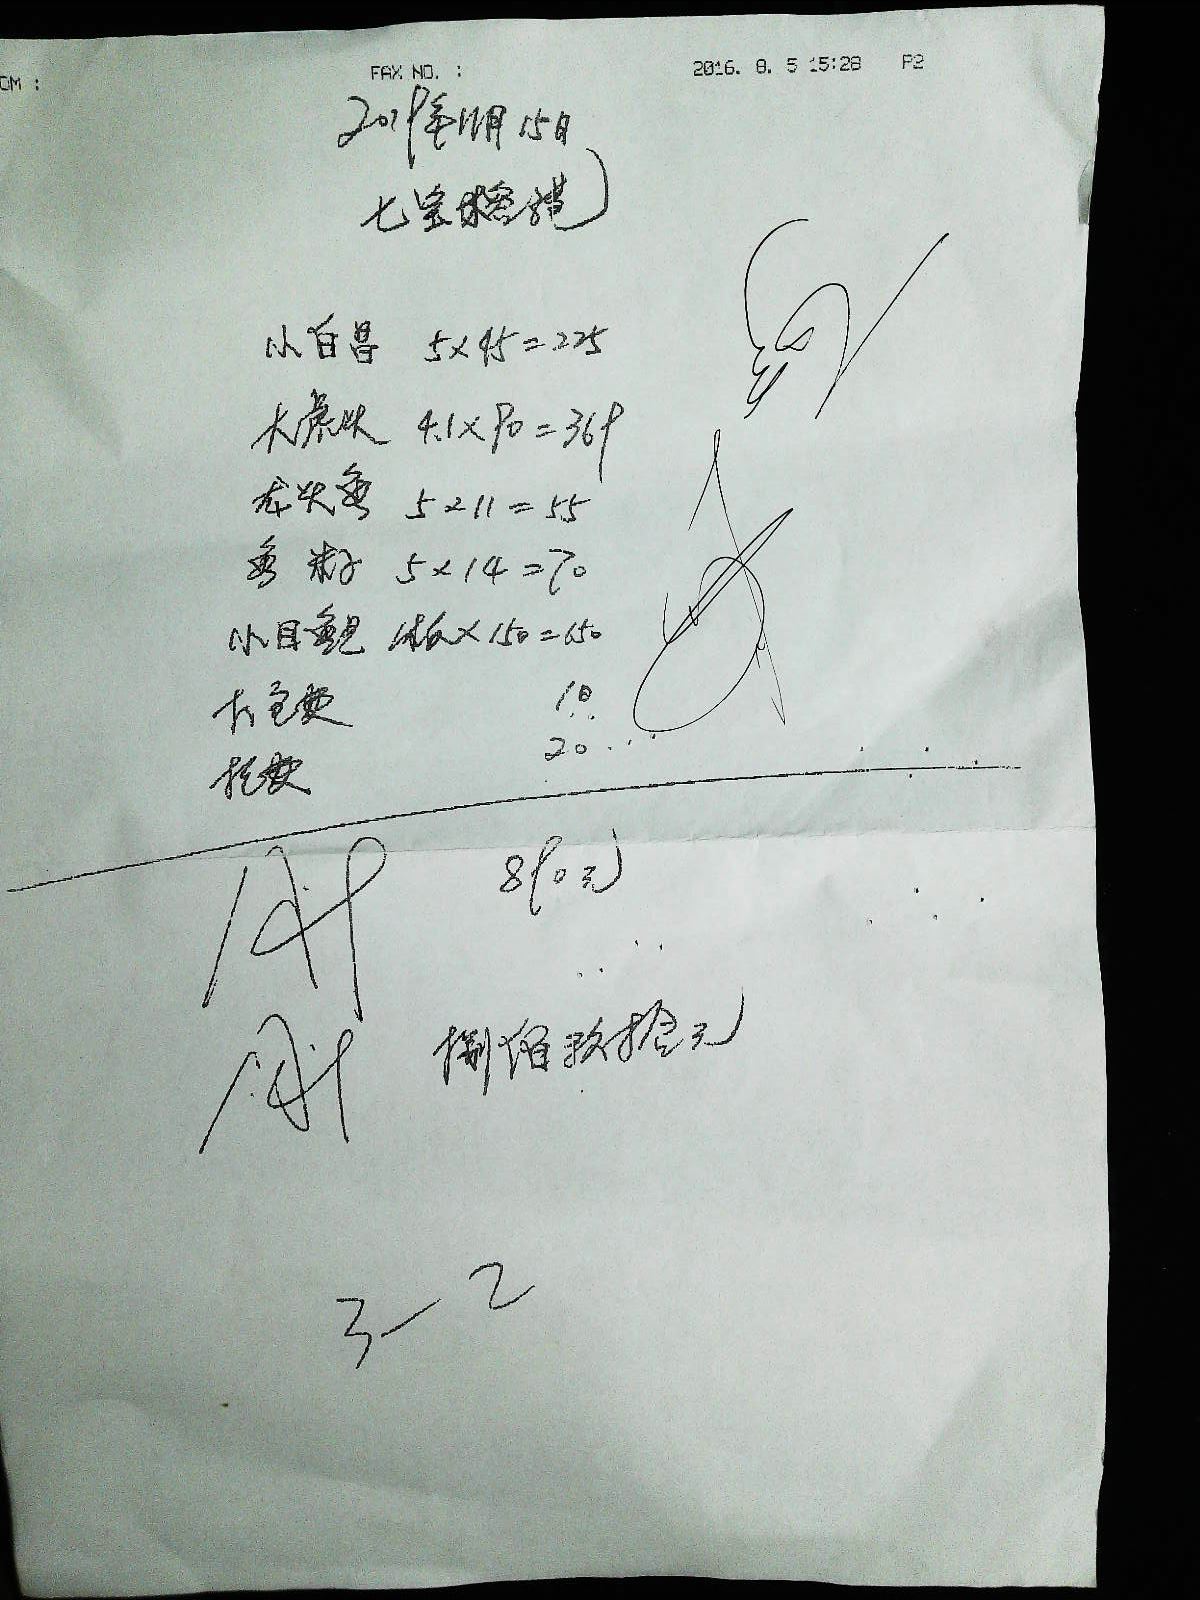 OM :
FAX NO. :
2016. 8. 5 15:28 P2
2019年11月15日
七宝
小白昌 5×45=225
大虎头 4.1×90=369
龙头鱼 5×11=55
鱼籽 5×14=70
小目鱼 ×150=150
费 10
费 20
890元
捌佰玖拾元
3-2